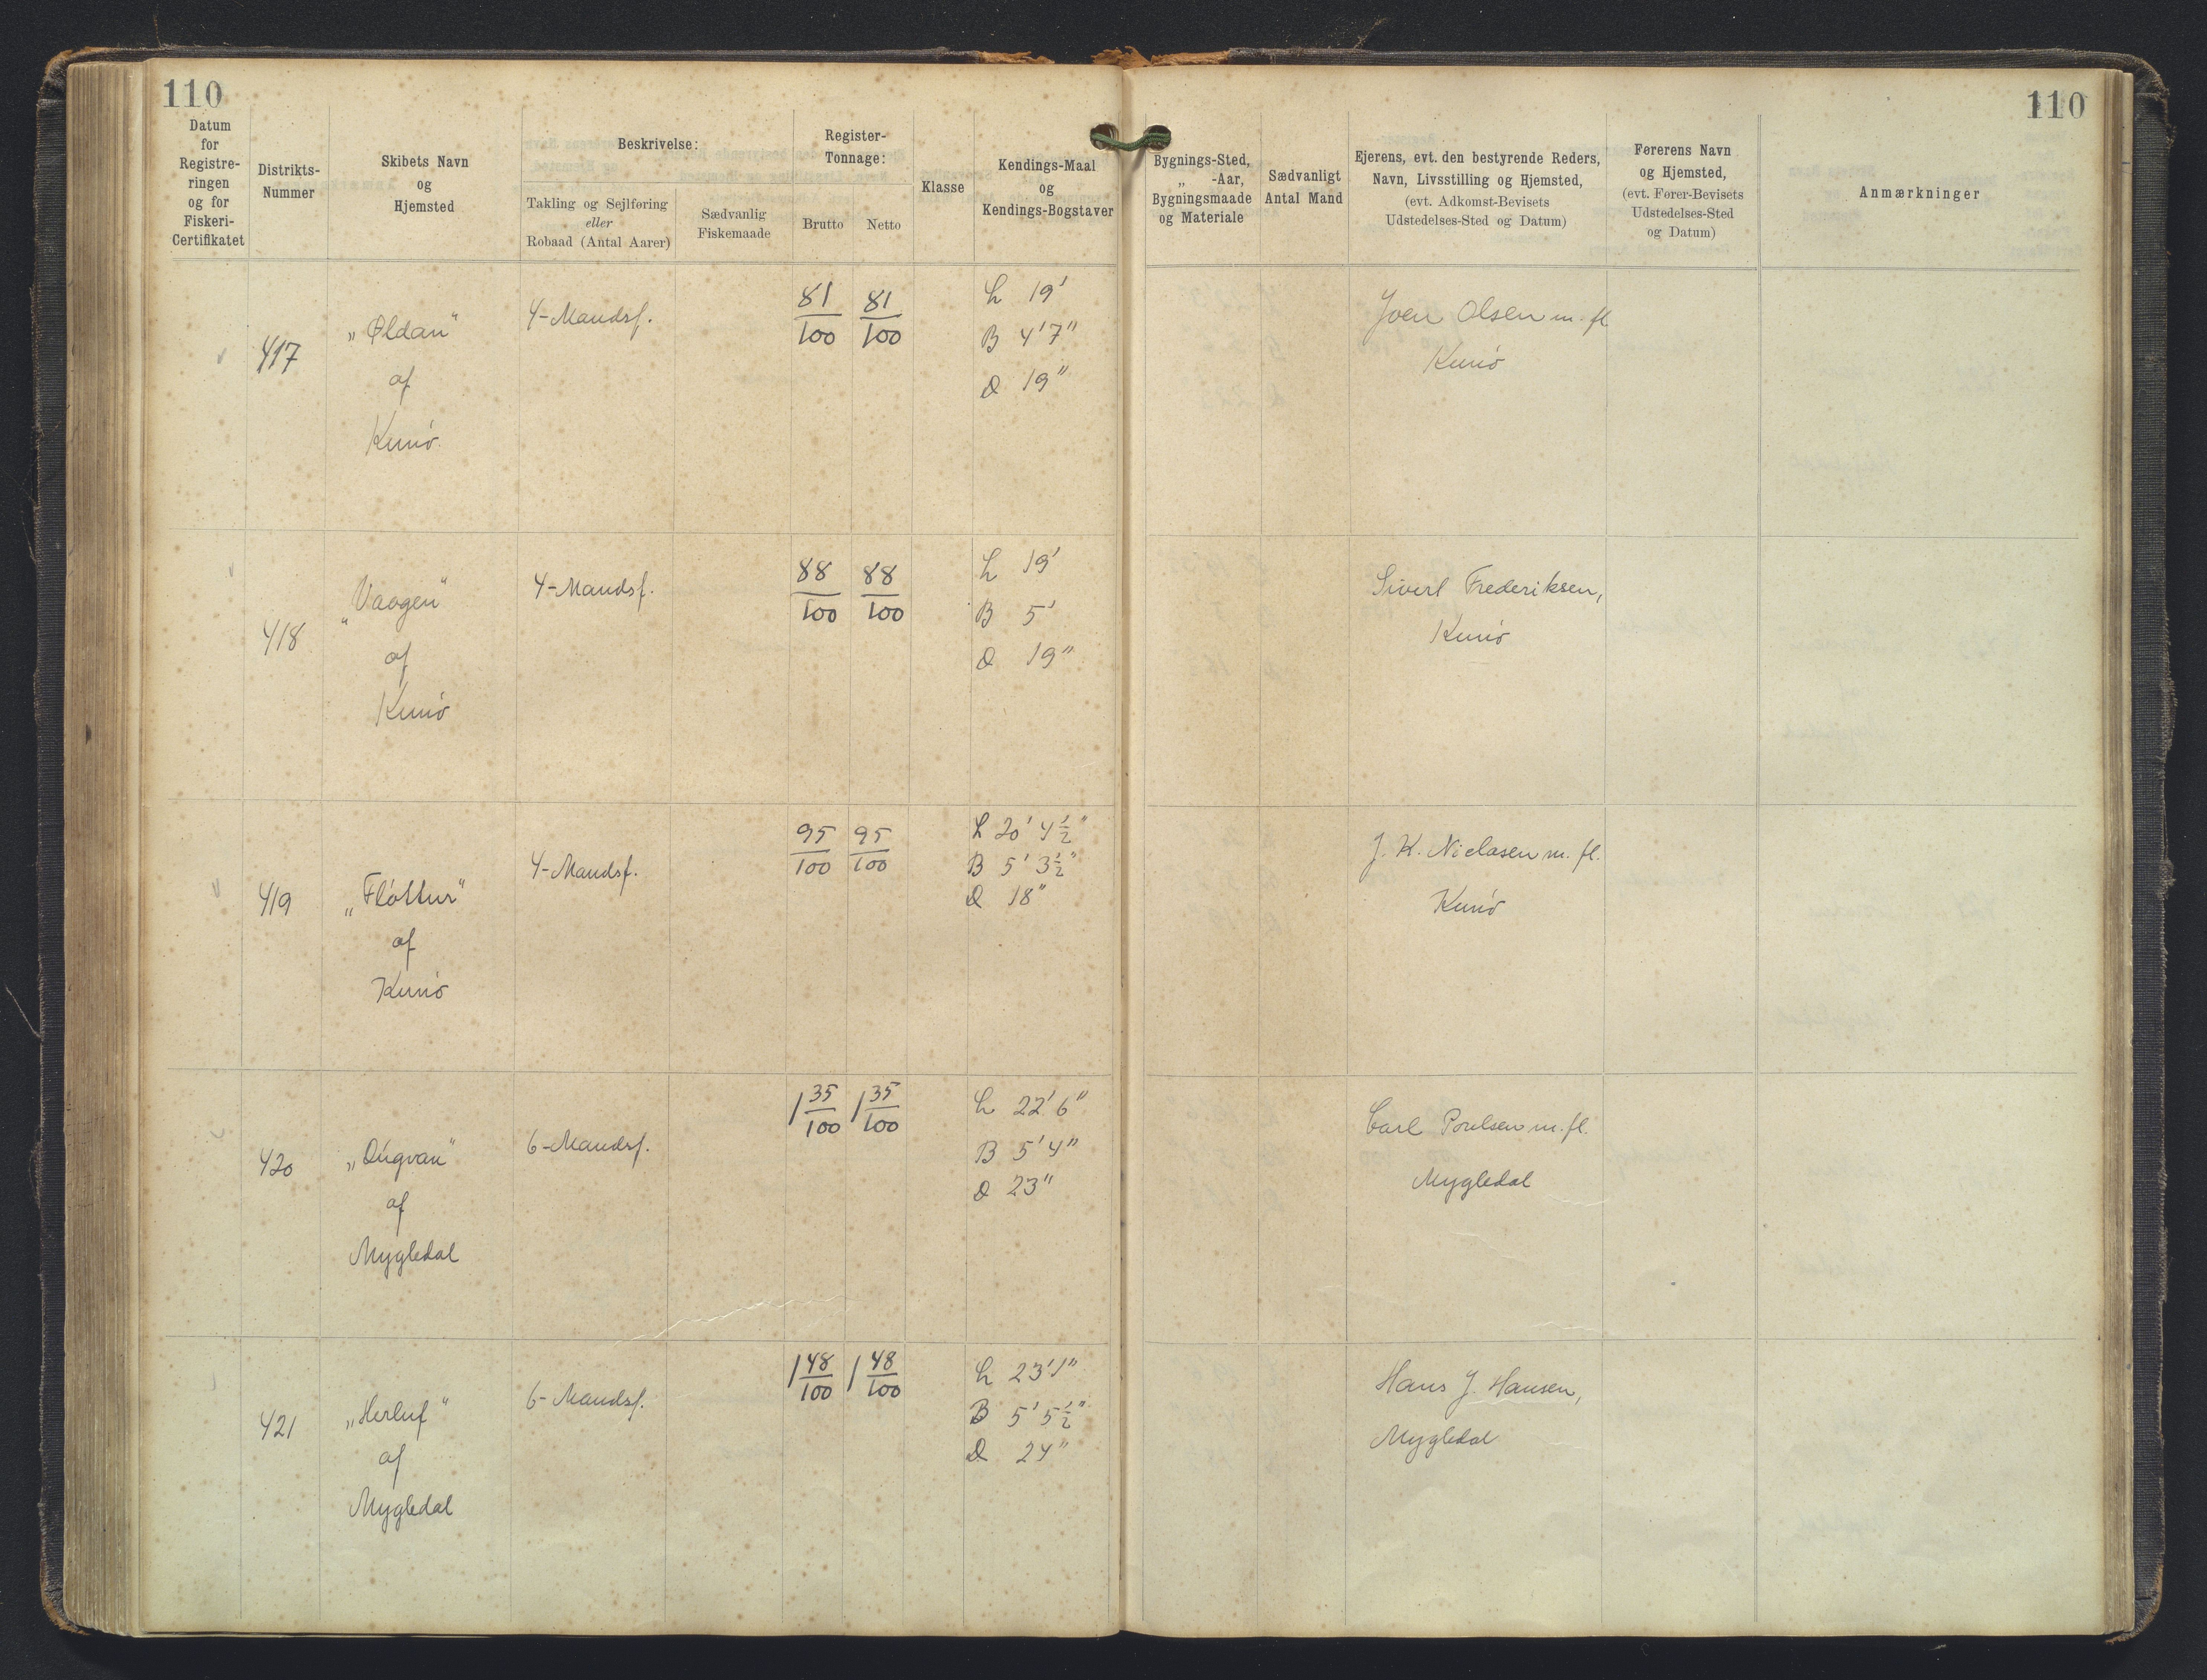 110
110
Datum
for
Registre-
ringen
og for
Fiskeri-
Certifikatet
Distrikts-
Nummer
Skibets Navn
og
Hjemsted
Beskrivelse:
Takling og Sejlføring
eller
Robaad (Antal Aarer)
Sædvanlig
Fiskemaade
Register-
Tonnage:
Brutto
Netto
Klasse
Kendings-Maal
og
Kendings-Bogstaver
Bygnings-Sted,
„ -Aar,
Bygningsmaade
og Materiale
Sædvanligt
Antal Mand
Ejerens, evt. den bestyrende Reders,
Navn, Livsstilling og Hjemsted,
(evt. Adkomst-Bevisets
Udstedelses-Sted og Datum)
Førerens Navn
og Hjemsted,
(evt. Fører-Bevisets
Udstedelses-Sted
og Datum)
Anmærkninger
417
„Øldan"
af
Kunø.
4-Mandsf.
81/100 81/100
L 19'
B 4'7"
D 19"
Joen Olsen m. fl.
Kunø
418
„Vaagen"
af
Kunø
4-Mandsf.
88/100 88/100
L 19'
B 5'
D 19"
Sivert Frederiksen,
Kunø
419
„Fløttur"
af
Kunø
4-Mandsf.
95/100 95/100
L 20' 4½"
B 5' 3½"
D 18"
J. K. Nielasen m. fl.
Kunø
420
„Dúgvan"
af
Mygledal
6-Mandsf.
1 35/100 1 35/100
L 22'6"
B 5'4"
D 23"
Carl Poulsen m. fl.
Mygledal
421
„Herluf"
af
Mygledal
6-Mandsf.
1 48/100 1 48/100
L 23'1"
B 5'5½"
D 24"
Hans J. Hansen,
Mygledal